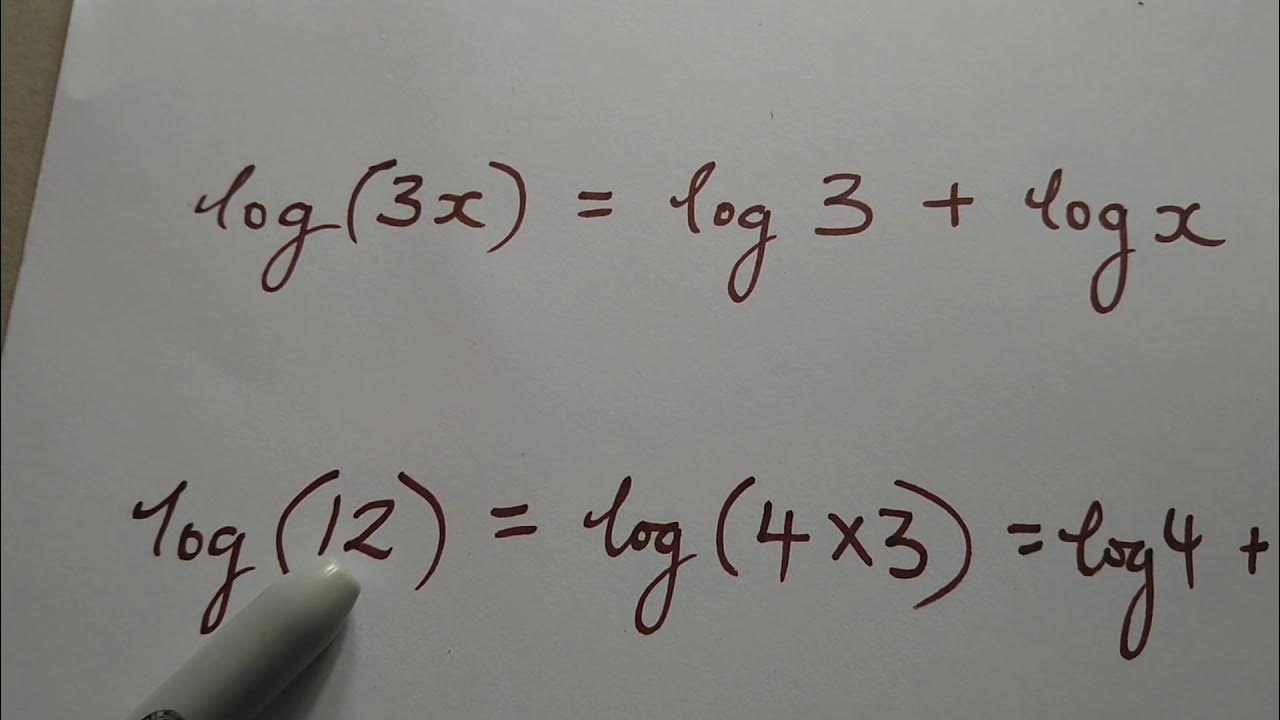 log(3x) = log 3 + log x
log(12) = log(4×3) = log 4 +